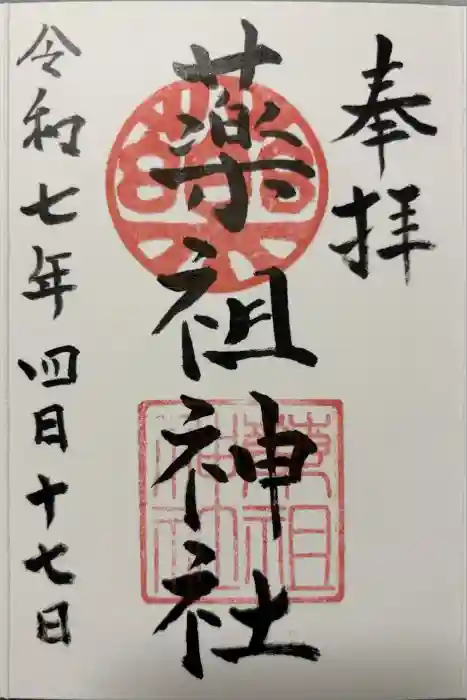 奉拝
薬祖神社
令和七年四月十七日
薬祖
神社